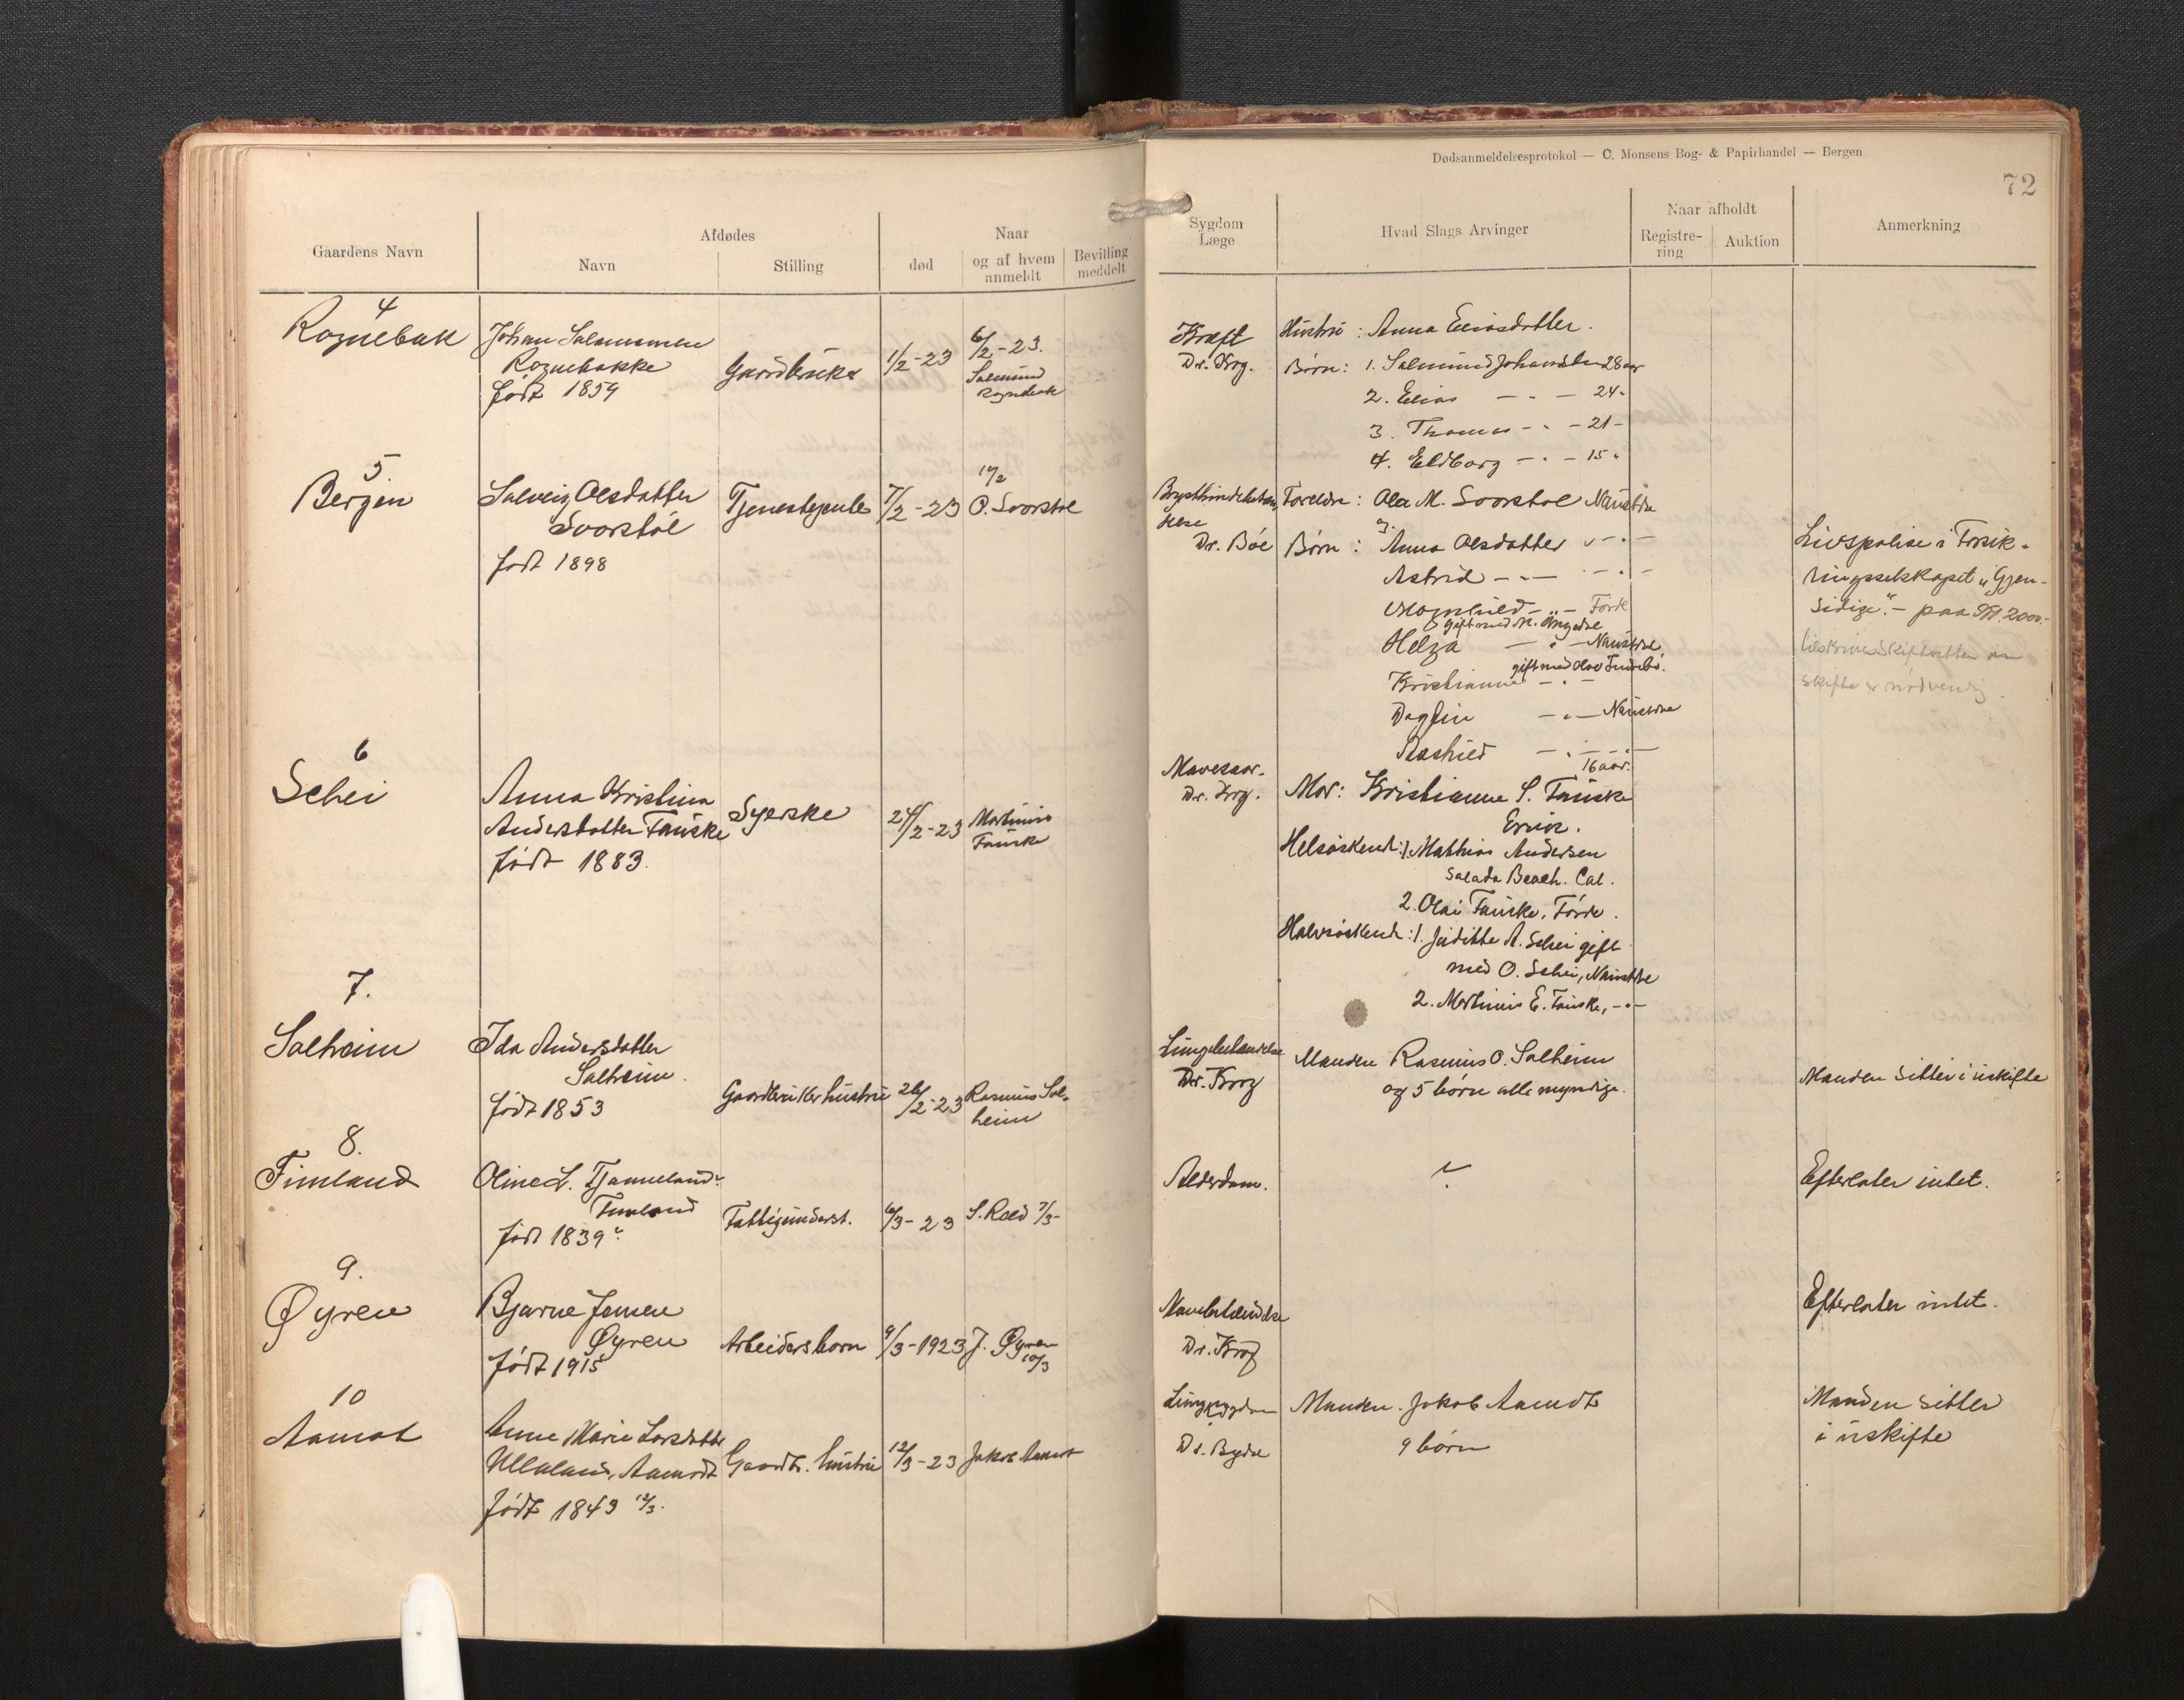 Dødsanmeldelsesprotokol — C. Monsens Bog- & Papirhandel — Bergen
72
Gaardens Navn
Afdødes
Navn
Stilling
død
Naar
og af hvem
anmeldt
Bevilling
meddelt
Sygdom
Læge
Hvad Slags Arvinger
Naar afholdt
Registre-
ring
Auktion
Anmerkning
4
Rognebak
Johan Salmunsen
Rognebakke
født 1859
Gaardbruker
1/2-23
6/2-23.
Salmund
Rognebak
Kræft
Dr. Krog.
Hustru: Anna Eliasdatter.
Børn: 1. Salmund Johansen 28 aar
2. Elias — " — 24 "
3. Thomas — " — 21 —
4. Eldborg — " — 15 "
5
Bergen
Solveig Olsdatter
Svorstøl
født 1898
Tjenestepike
7/2-23
O. Svorstøl
Dr. Bøe
Foreldre: Ola M. Svorstøl Naustdal
Børn: Anna Olsdatter — " —
Astrid — " — — " —
Magnhild — " — Førde
Helga — " — Naustdal
Kristianne — " —
Dagfin — " — Naustdal
Aashild — " — — " —
16 aar.
Livspolise i Forsik-
ringsselskapet "Gjen-
sidige" — paa Kr. 2000.-
tilskrives Skifteretten om
skifte er nødvendig.
6
Schei
Anna Kristina
Andersdatter Fauske
født 1883.
Syerske
24/2-23
Martinus
Fauske
Mavesaar.
Dr. Krog.
Mor: Kristianne S. Fauske
Enke.
Helsøskend: 1. Mathias Andersen
Salada Beach. Cal.
2. Olai Fauske, Førde.
Halvsøskend: 1. Juditte A. Schei gift
med O. Schei, Naustdal
2. Martinus E. Fauske, — " —
7.
Solheim
Ida Andersdatter
Solheim.
født 1853
Gaardbrukerhustru
26/2-23
Rasmus Sol-
heim
Lungebetændelse
Dr. Krog
Manden Rasmus O. Solheim
og 5 børn alle myndige.
Manden sitter i uskifte
8.
Fimland
Oline L. Tjønneland?
Fimland
født 1839?
Fattigunderst.
6/3-23
S. Reed 7/3-
Alderdom.
?
Efterlater intet.
9.
Øyren
Bjarne Jensen
Øyren
født 1915
Arbeidersbarn
9/3-1923
J. Øyren
10/3
Mavebetændelse
Dr. Krog
Efterlater intet.
10
Aamot
Anne Marie Larsdatter
Ullaland, Aamodt
født 1843 12/3.
Gaardbr. hustru
12/3-23
Jakob Aamot
Lungesygdom
Manden. Jakob Aamodt
9 børn
Manden sitter
i uskifte